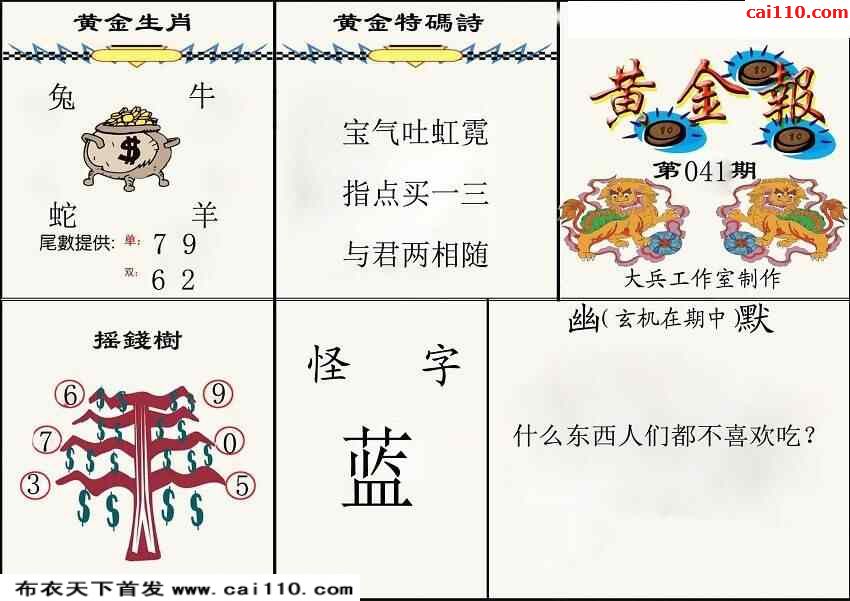 cai110.com
黄金生肖
兔 牛
$
蛇 羊
尾數提供: 单: 7 9
双: 6 2
黄金特碼詩
宝气吐虹霓
指点买一三
与君两相随
黄金報
10
10
10
第041期
大兵工作室制作
摇錢樹
6 9
7 0
3 5
怪 字
蓝
幽(玄机在期中)默
什么东西人们都不喜欢吃?
布衣天下首发 www.cai110.com